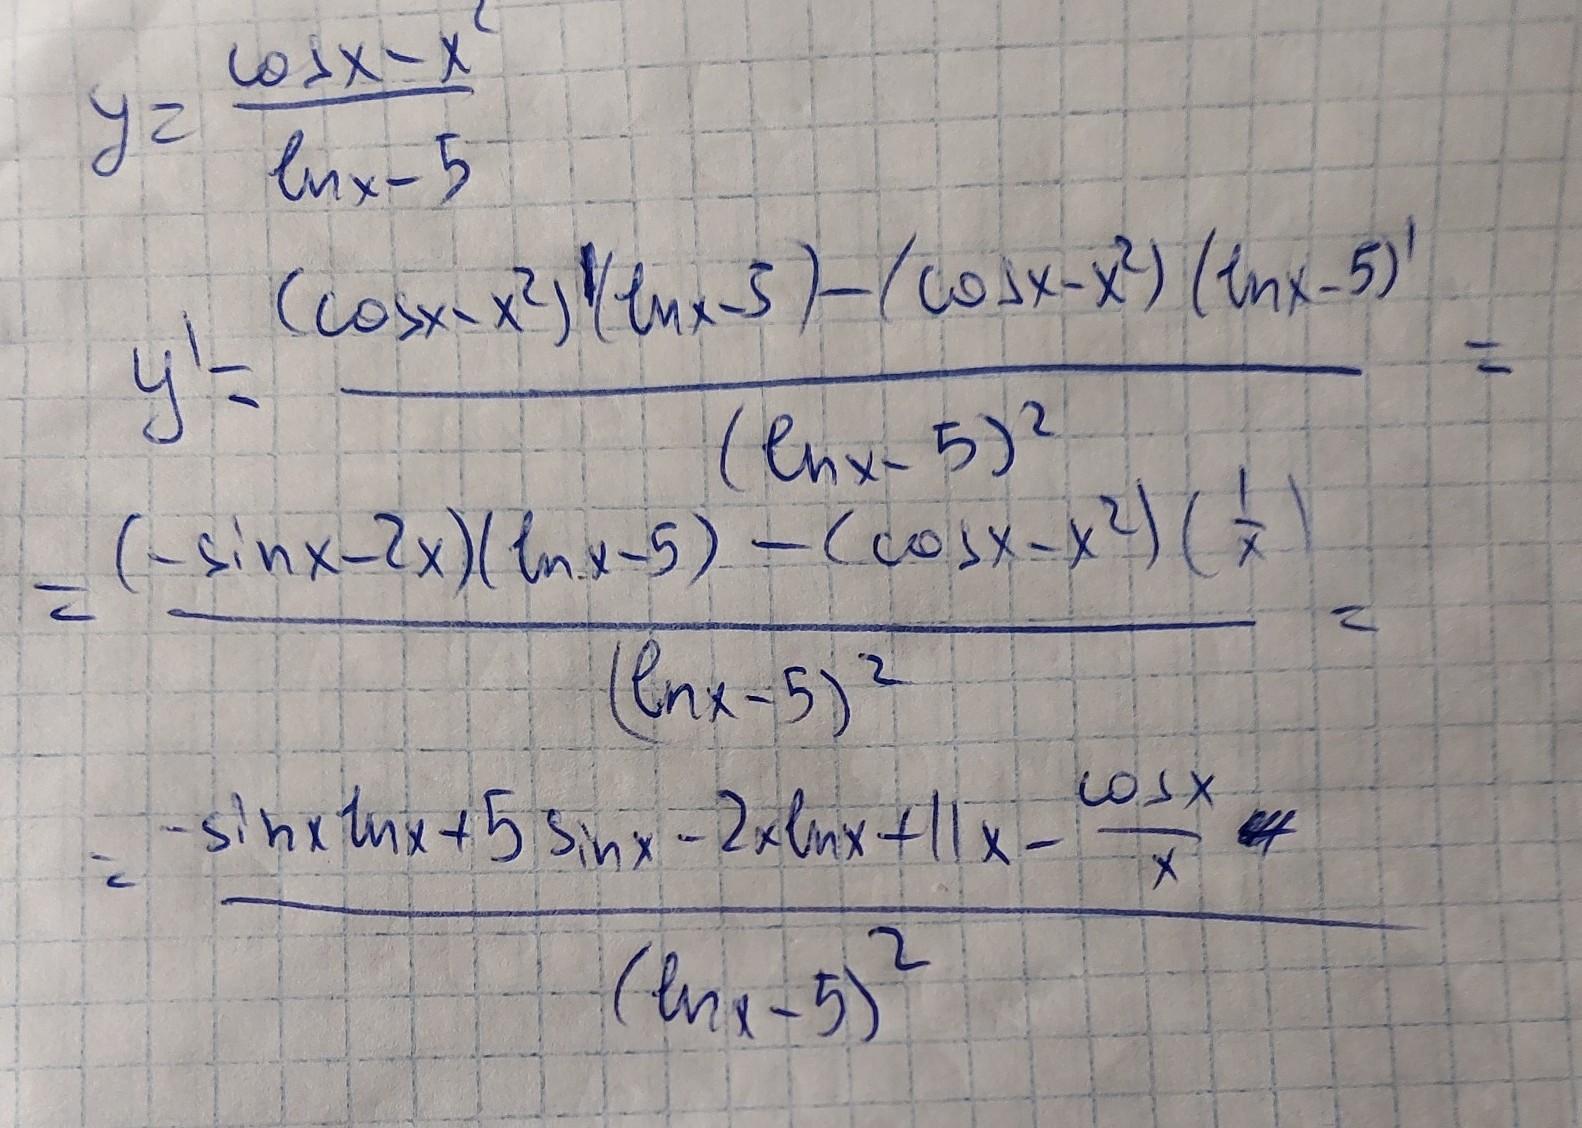 y = (cosx - x²) / (lnx - 5)
y' = ((cosx - x²)'(lnx - 5) - (cosx - x²)(lnx - 5)') / (lnx - 5)² =
= ((-sinx - 2x)(lnx - 5) - (cosx - x²)(1/x)) / (lnx - 5)² =
= (-sinx lnx + 5 sinx - 2x lnx + 11x - cosx/x) / (lnx - 5)²